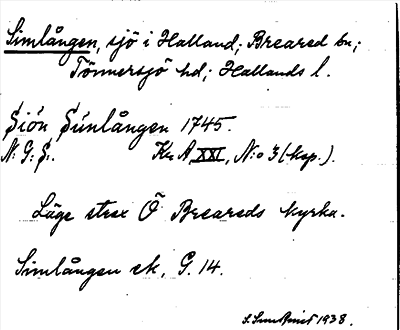 Simlången, sjö i Halland; Breared sn;
Tönnersjö hd; Hallands l.
Siön Simlången 1745.
N: G: S:. Kr. A, XXI, N:o 3 (ksp.).
Läge strax Ö Breareds kyrka.
Simlången ek, G. 14.
1938.